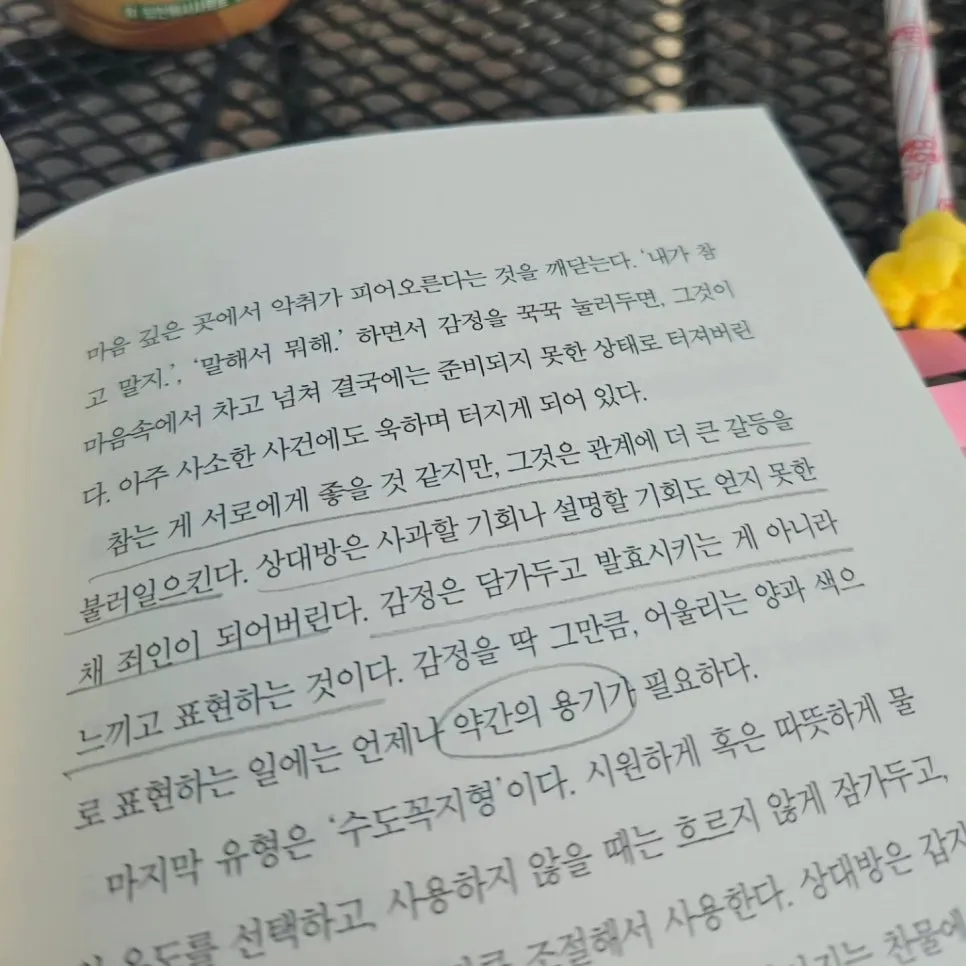 마음 깊은 곳에서 악취가 피어오른다는 것을 깨닫는다. ‘내가 참
고 말지.’, ‘말해서 뭐해.’ 하면서 감정을 꾹꾹 눌러두면, 그것이
마음속에서 차고 넘쳐 결국에는 준비되지 못한 상태로 터져버린
다. 아주 사소한 사건에도 욱하며 터지게 되어 있다.
참는 게 서로에게 좋을 것 같지만, 그것은 관계에 더 큰 갈등을
불러일으킨다. 상대방은 사과할 기회나 설명할 기회도 얻지 못한
채 죄인이 되어버린다. 감정은 담가두고 발효시키는 게 아니라
느끼고 표현하는 것이다. 감정을 딱 그만큼, 어울리는 양과 색으
로 표현하는 일에는 언제나 약간의 용기가 필요하다.
마지막 유형은 ‘수도꼭지형’이다. 시원하게 혹은 따뜻하게 물
온도를 선택하고, 사용하지 않을 때는 흐르지 않게 잠가두고,
조절해서 사용한다. 상대방은
찬물에